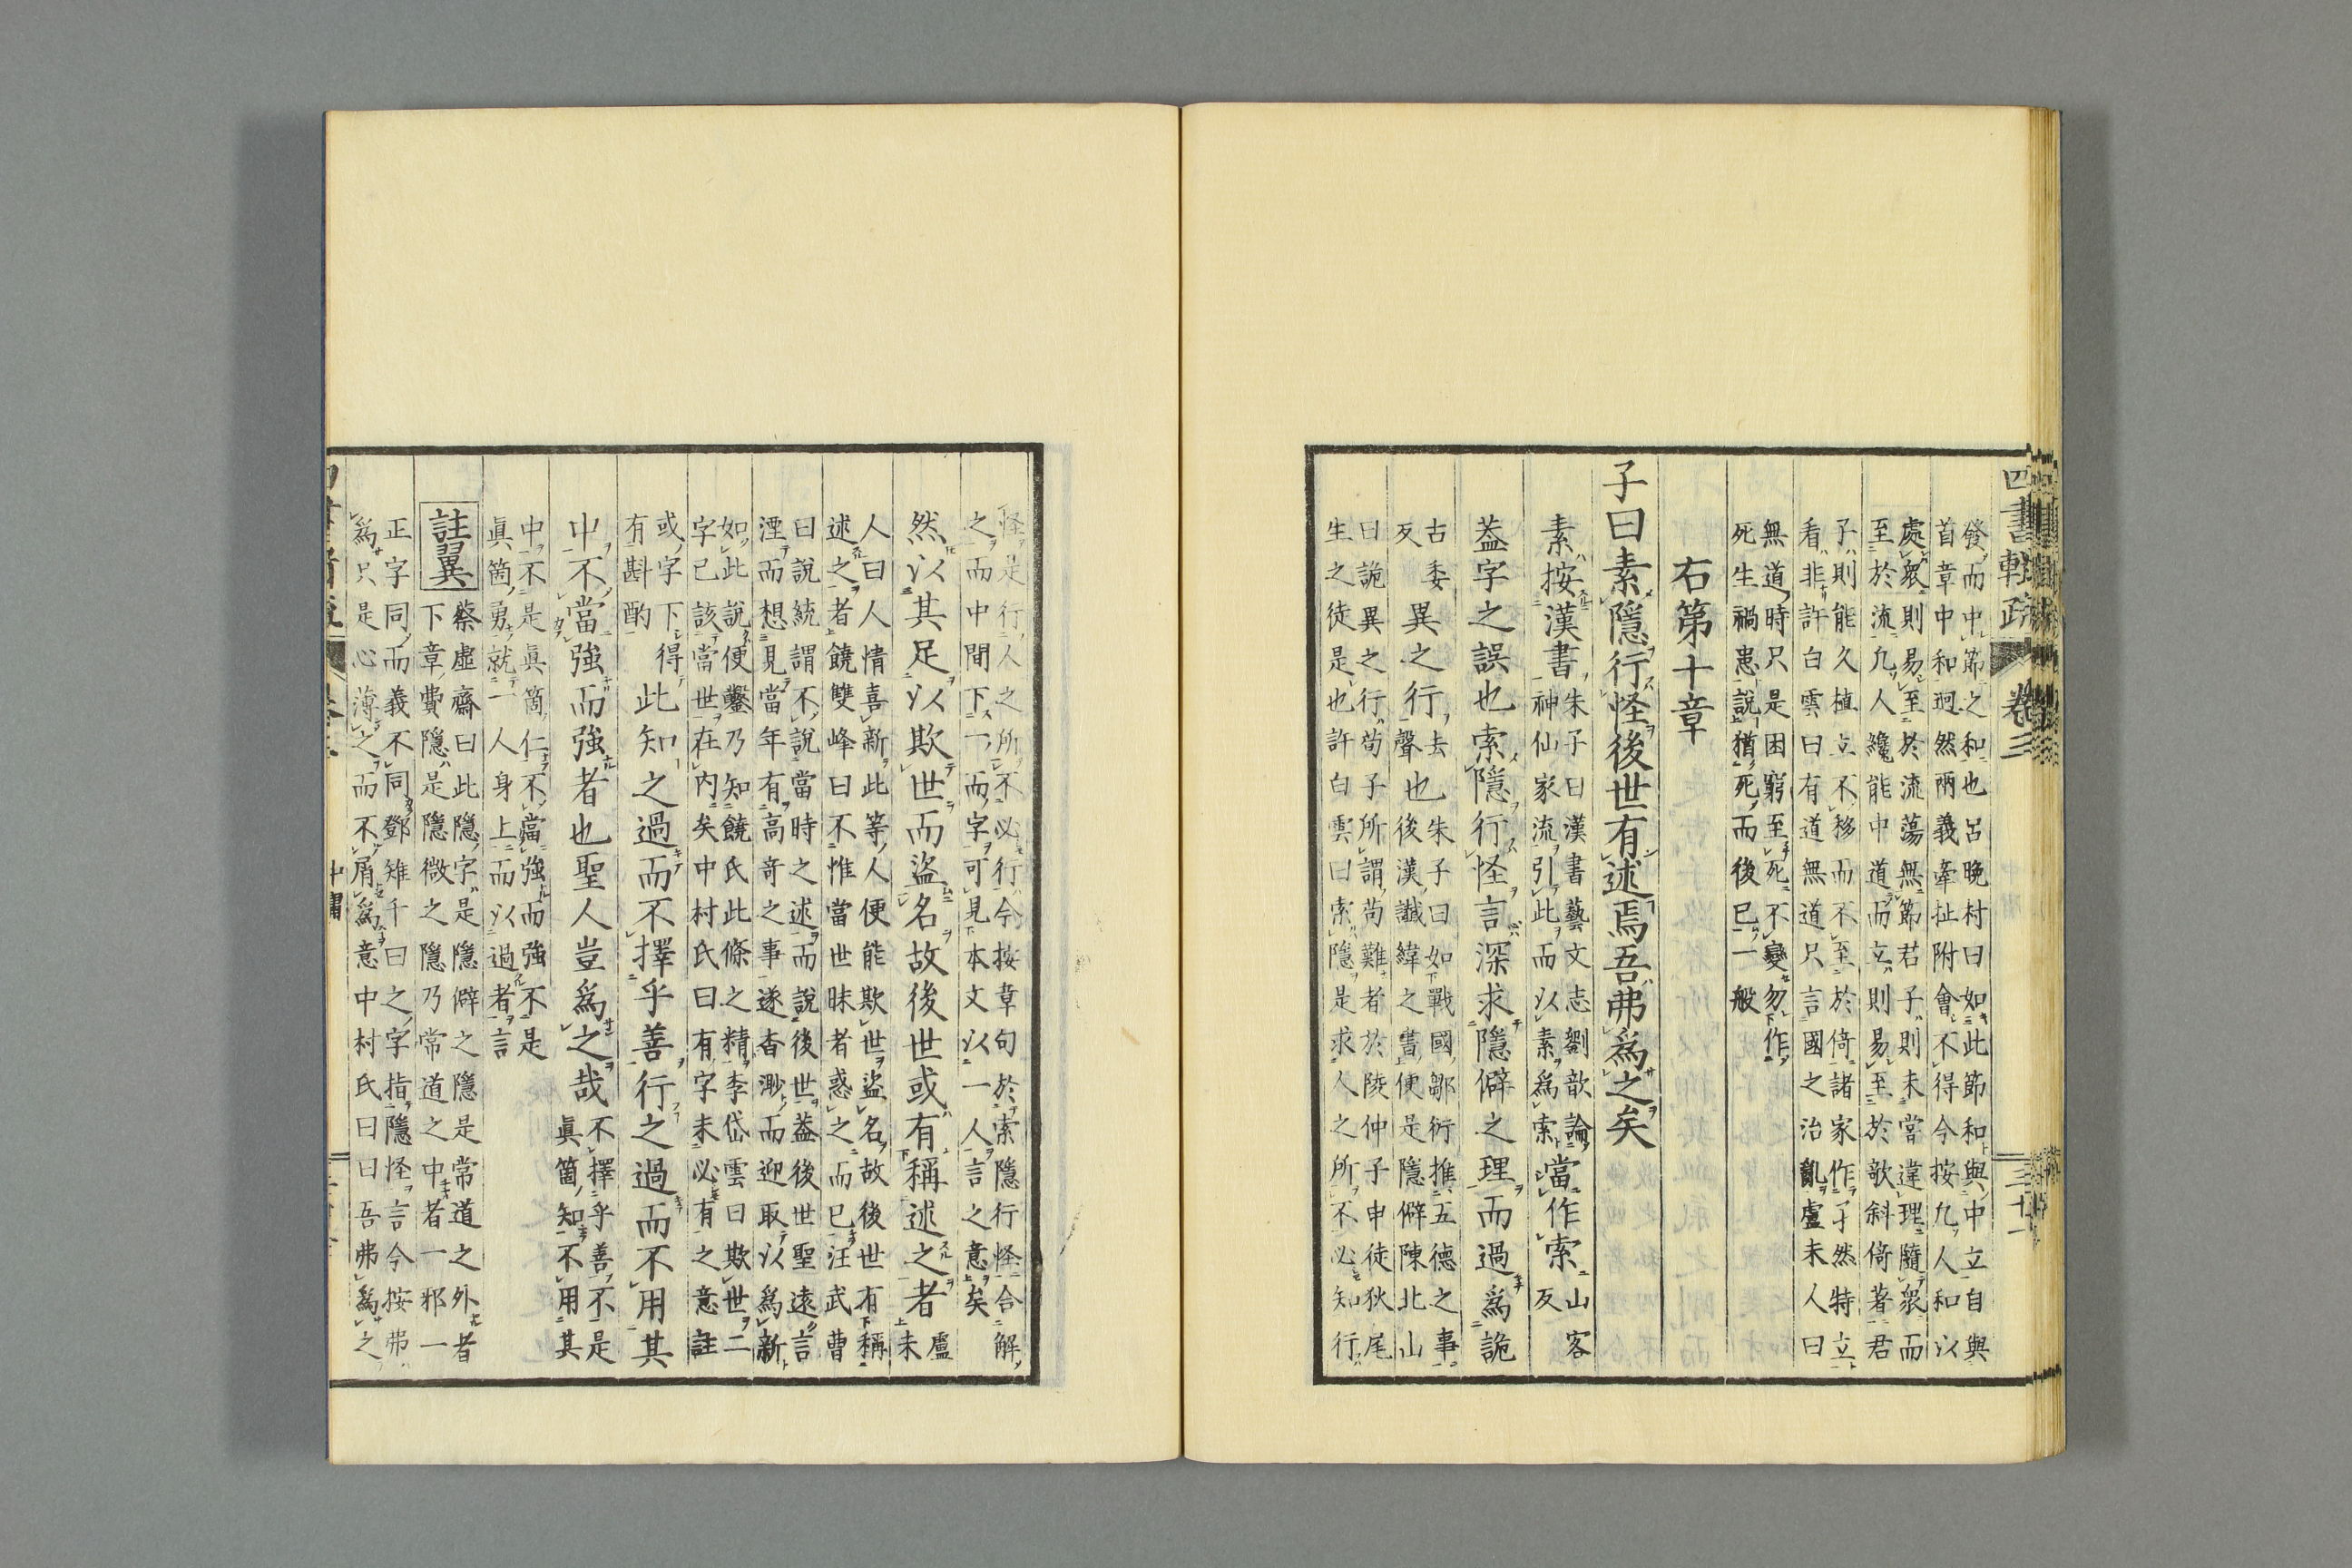 四書輯疏 卷三 三十一
發而中節之和也呂晚村曰如此節和與中立自與
首章中和迥然兩義牽扯附會不得今按凡人和以
處衆則易至於流蕩無節若子則未嘗違理隨衆而
至於流凡人纔能中道而立則易至於欹斜倚著君
子則能久植立不移而不至於倚諸家作孑然特立
看非許白雲曰有道無道只言國之治亂盧未人曰
無道時只是困窮至死不變勿作
死生禍患說猶死而後已一般
右第十章
子曰素隱行怪後世有述焉吾弗爲之矣
素按漢書
朱子曰漢書藝文志劉歆論
神仙家流引此而以素爲索
當作索
山客
反
蓋字之誤也索隱行怪言深求隱僻之理而過爲詭
古委
反
異之行
去
聲
也
朱子曰如戰國鄒衍推五德之事
後漢讖緯之書便是隱僻陳北山
曰詭異之行荀子所謂苟難者於陵仲子申徒狄尾
生之徒是也許白雲曰索隱是求人之所不必知行
怪是行人之所不必行今按章句於索隱行怪合解
之而中間下一而字可見本文以一人言之意矣
然以其足以欺世而盜名故後世或有稱述之者
盧
未
人曰人情喜新此等人便能欺世盜名故後世有稱
述之者饒雙峰曰不惟當世昧者惑之而已汪武曹
曰說統謂不說當時之述而說後世蓋後世聖遠言
湮而想見當年有高奇之事遂杳渺而迎取以爲新
如此說便鑿乃知饒氏此條之精李岱雲曰欺世二
字已該當世在內矣中村氏曰有字未必有之意註
或字下得
有斟酌
此知之過而不擇乎善行之過而不用其
中不當強而強者也聖人豈爲之哉
不擇乎善不是
眞箇知不用其
中不是眞箇仁不當強而強不是
眞箇勇就一人身上而以過者言
註翼
蔡虛齋曰此隱字是隱僻之隱是常道之外者
下章費隱是隱微之隱乃常道之中者一邪一
正字同而義不同鄧雉千曰之字指隱怪言今按弗
爲只是心薄之而不屑爲意中村氏曰曰吾弗爲之
中庸